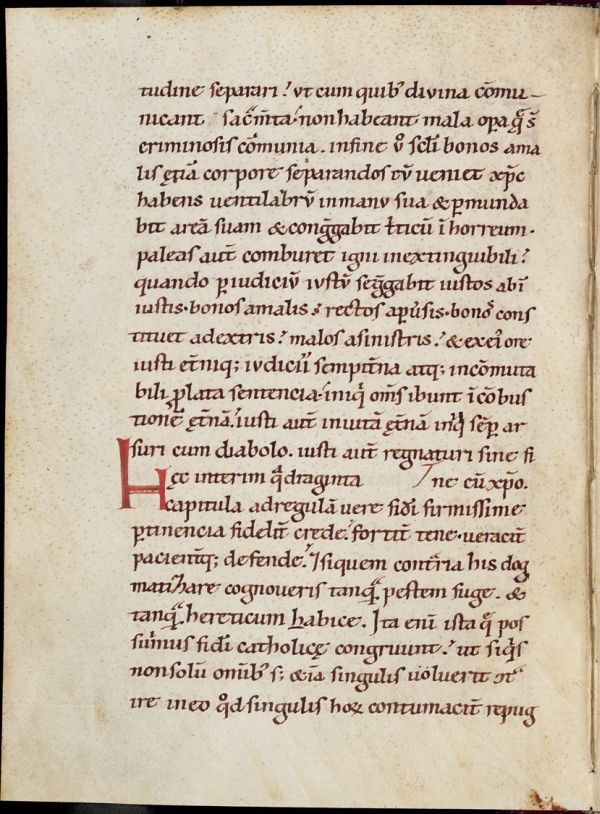 tudine separari? ut cum quib; divina cōmu-
nicant sacm̄ta, non habeant mala opera q̄ s̄t
criminosis cōmunia. in fine ṽ scl̄i bonos a ma
lis etiā corpore separandos tũ veniet xp̄c
habens ventilabrū in manu sua & p̄munda
bit areā suam & cong̃gabit t̄ticū ī horreum.
paleas aut̄ comburet igni inextinguibili?
quando p̄ iudiciū iustū seg̃gabit iustos ab ī
iustis. bonos a malis. rectos a p̄v̄sis. bonos cons
tituet ad extris? malos a sinistris? & ex ei ore
iusti et̄niq; iudicii sempit̄na atq; incōmuta
bili p̄lata sentencia. iniq̇ om̄s ibunt ī cōbus
tionē et̄nā. iusti aut̄ in uitā et̄nā iniq̇ semp̄ ar
suri cum diabolo. iusti aut̄ regnaturi sine fi
Hęc interim q̄draginta ne cū xp̄o.
capitula ad regulā vere fidi firmissime
p̄tinencia fidelit̄ crede? fortit̄ tene. veracit̄
pacient̄q; defende? I siquem contr̄ria his dog
matizare cognoveris tanq̄ pestem fuge. &
tanq̄ hereticum habice. Ita eni ista q̄ pos
suimus fidi catholicę congruunt? ut siq̇s
non solū om̄ib; s; &iā singulis uoluerit 9t̄
ire in eo q̊d singulis hoꝝ contumacit̄ repug